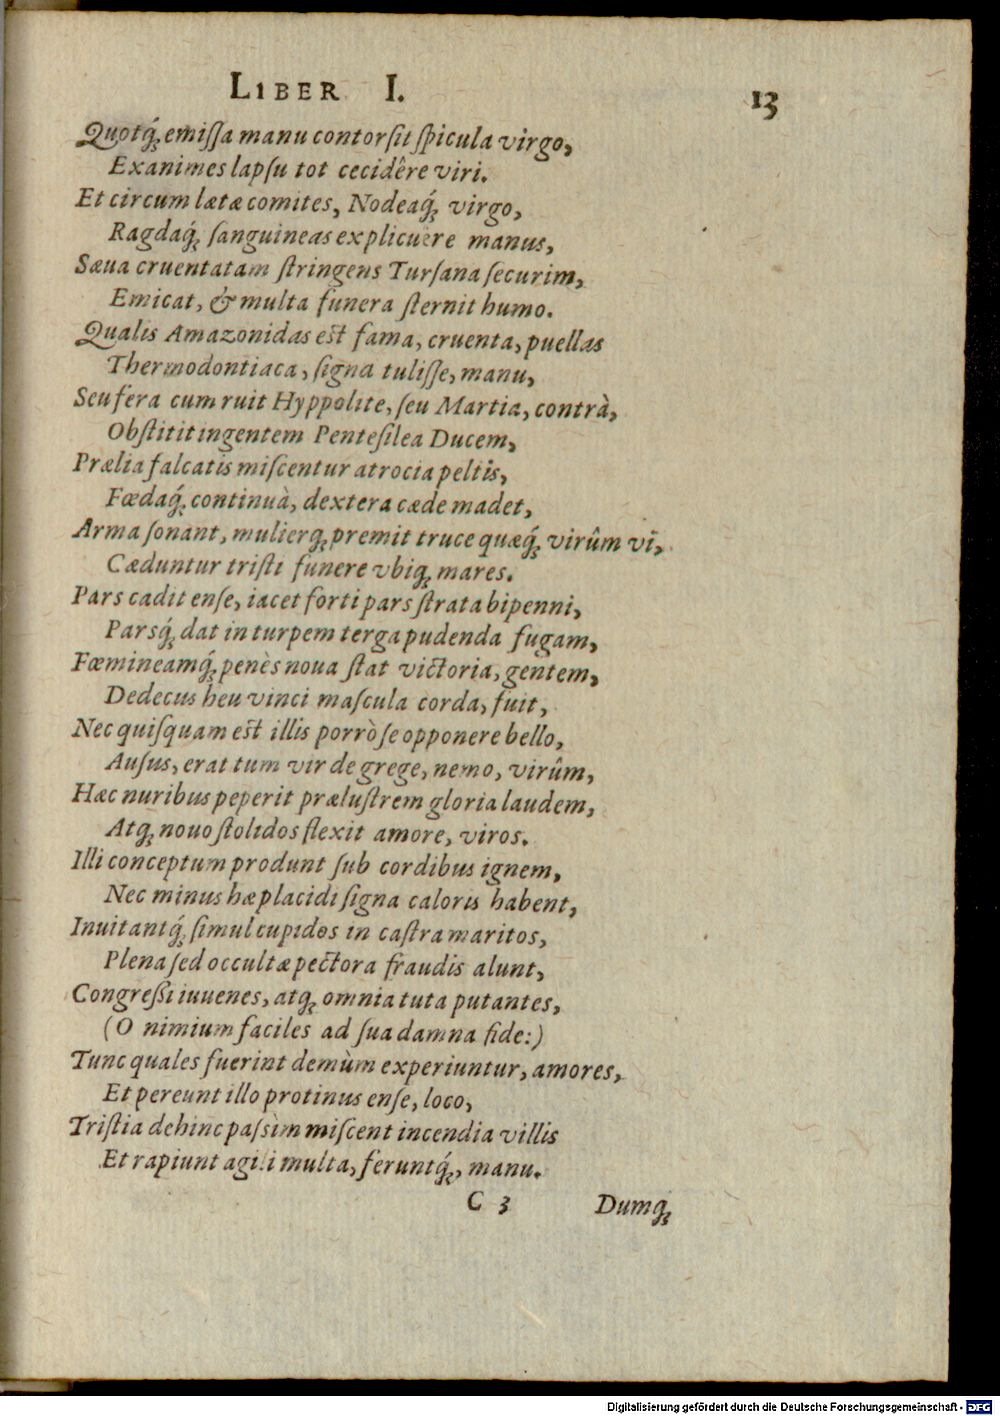 LIBER I. 13
Quotq́; emiſſa manu contorſit ſpicula virgo,
Exanimes lapſu tot cecidêre viri.
Et circum lætæ comites, Nodeaq́; virgo,
Ragdaq́; ſanguineas explicuere manus,
Sæua cruentatam ſtringens Turſana ſecurim,
Emicat, & multa funera ſternit humo.
Qualis Amazonidas eſt fama, cruenta, puellas
Thermodontiaca, ſigna tuliſſe, manu,
Seu fera cum ruit Hyppolite, ſeu Martia, contrà,
Obſtitit ingentem Penteſilea Ducem,
Prælia falcatis miſcentur atrocia peltis,
Fœdaq́; continuà, dextera cæde madet,
Arma ſonant, mulierq; premit truce quæq́; virûm vî,
Cæduntur triſti funere vbiq; mares.
Pars cadit enſe, iacet forti pars ſtrata bipenni,
Parsq́; dat in turpem terga pudenda fugam,
Fœmineamq́; penès noua ſtat victoria, gentem,
Dedecus heu vinci maſcula corda, fuit,
Nec quiſquam eſt illis porrò ſe opponere bello,
Auſus, erat tum vir de grege, nemo, virûm,
Hæc nuribus peperit præluſtrem gloria laudem,
Atq; nouo ſtolidos flexit amore, viros.
Illi conceptum produnt ſub cordibus ignem,
Nec minus hæ placidi ſigna caloris habent,
Inuitantq́; ſimul cupidos in caſtra maritos,
Plena ſed occultæ pectora fraudis alunt,
Congreſſi iuuenes, atq; omnia tuta putantes,
(O nimium faciles ad ſua damna fide:)
Tunc quales fuerint demùm experiuntur, amores,
Et pereunt illo protinus enſe, loco,
Triſtia dehinc paſsìm miſcent incendia villis
Et rapiunt agili multa, feruntq́;, manu.
C 3 Dumq;
Digitalisierung gefördert durch die Deutsche Forschungsgemeinschaft - DFG